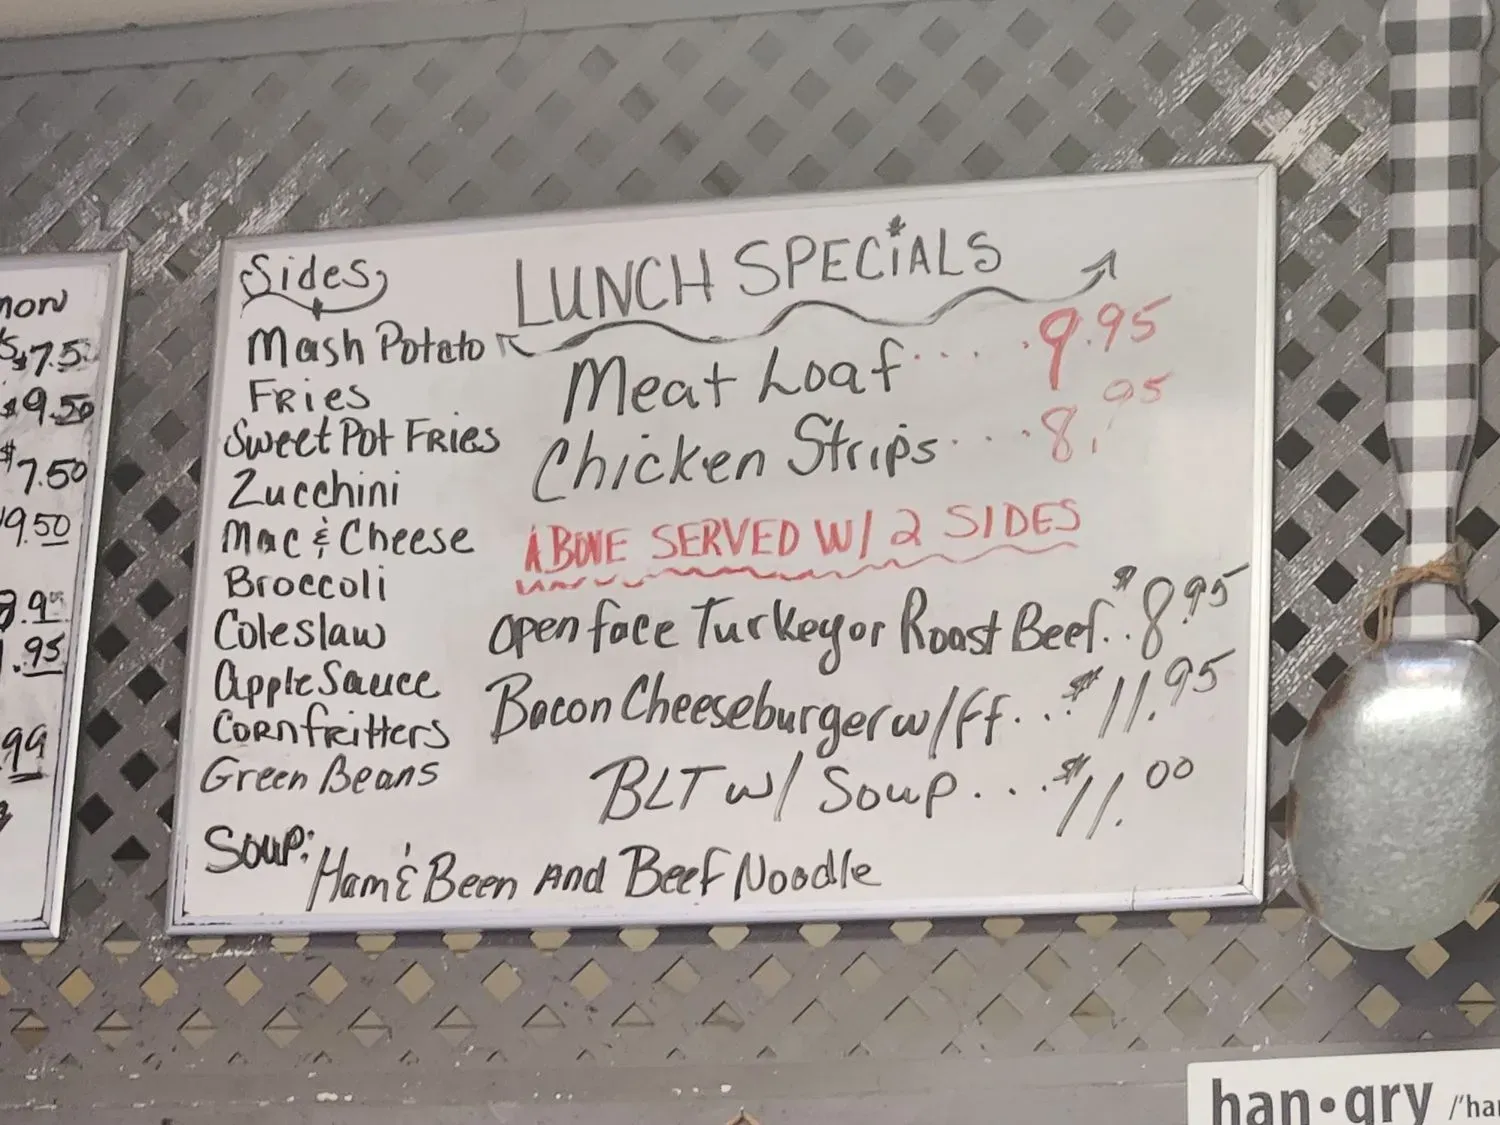 non
$7.5
$9.50
$7.50
9.50
.95
.99
Sides
Mash Potato
FRies
Sweet Pot FRies
Zucchini
Mac & Cheese
Broccoli
Coleslaw
Apple Sauce
CORN fritters
Green Beans
Soup: Ham & Been AND Beef Noodle
LUNCH SPECiALS
Meat Loaf .... 9.95
Chicken Strips ... 8.95
ABOVE SERVED W/ 2 SIDES
open face Turkey or Roast Beef.. $8.95
Bacon Cheeseburger w/ff... $11.95
BLT w/ Soup... $11.00
han•gry /'ha